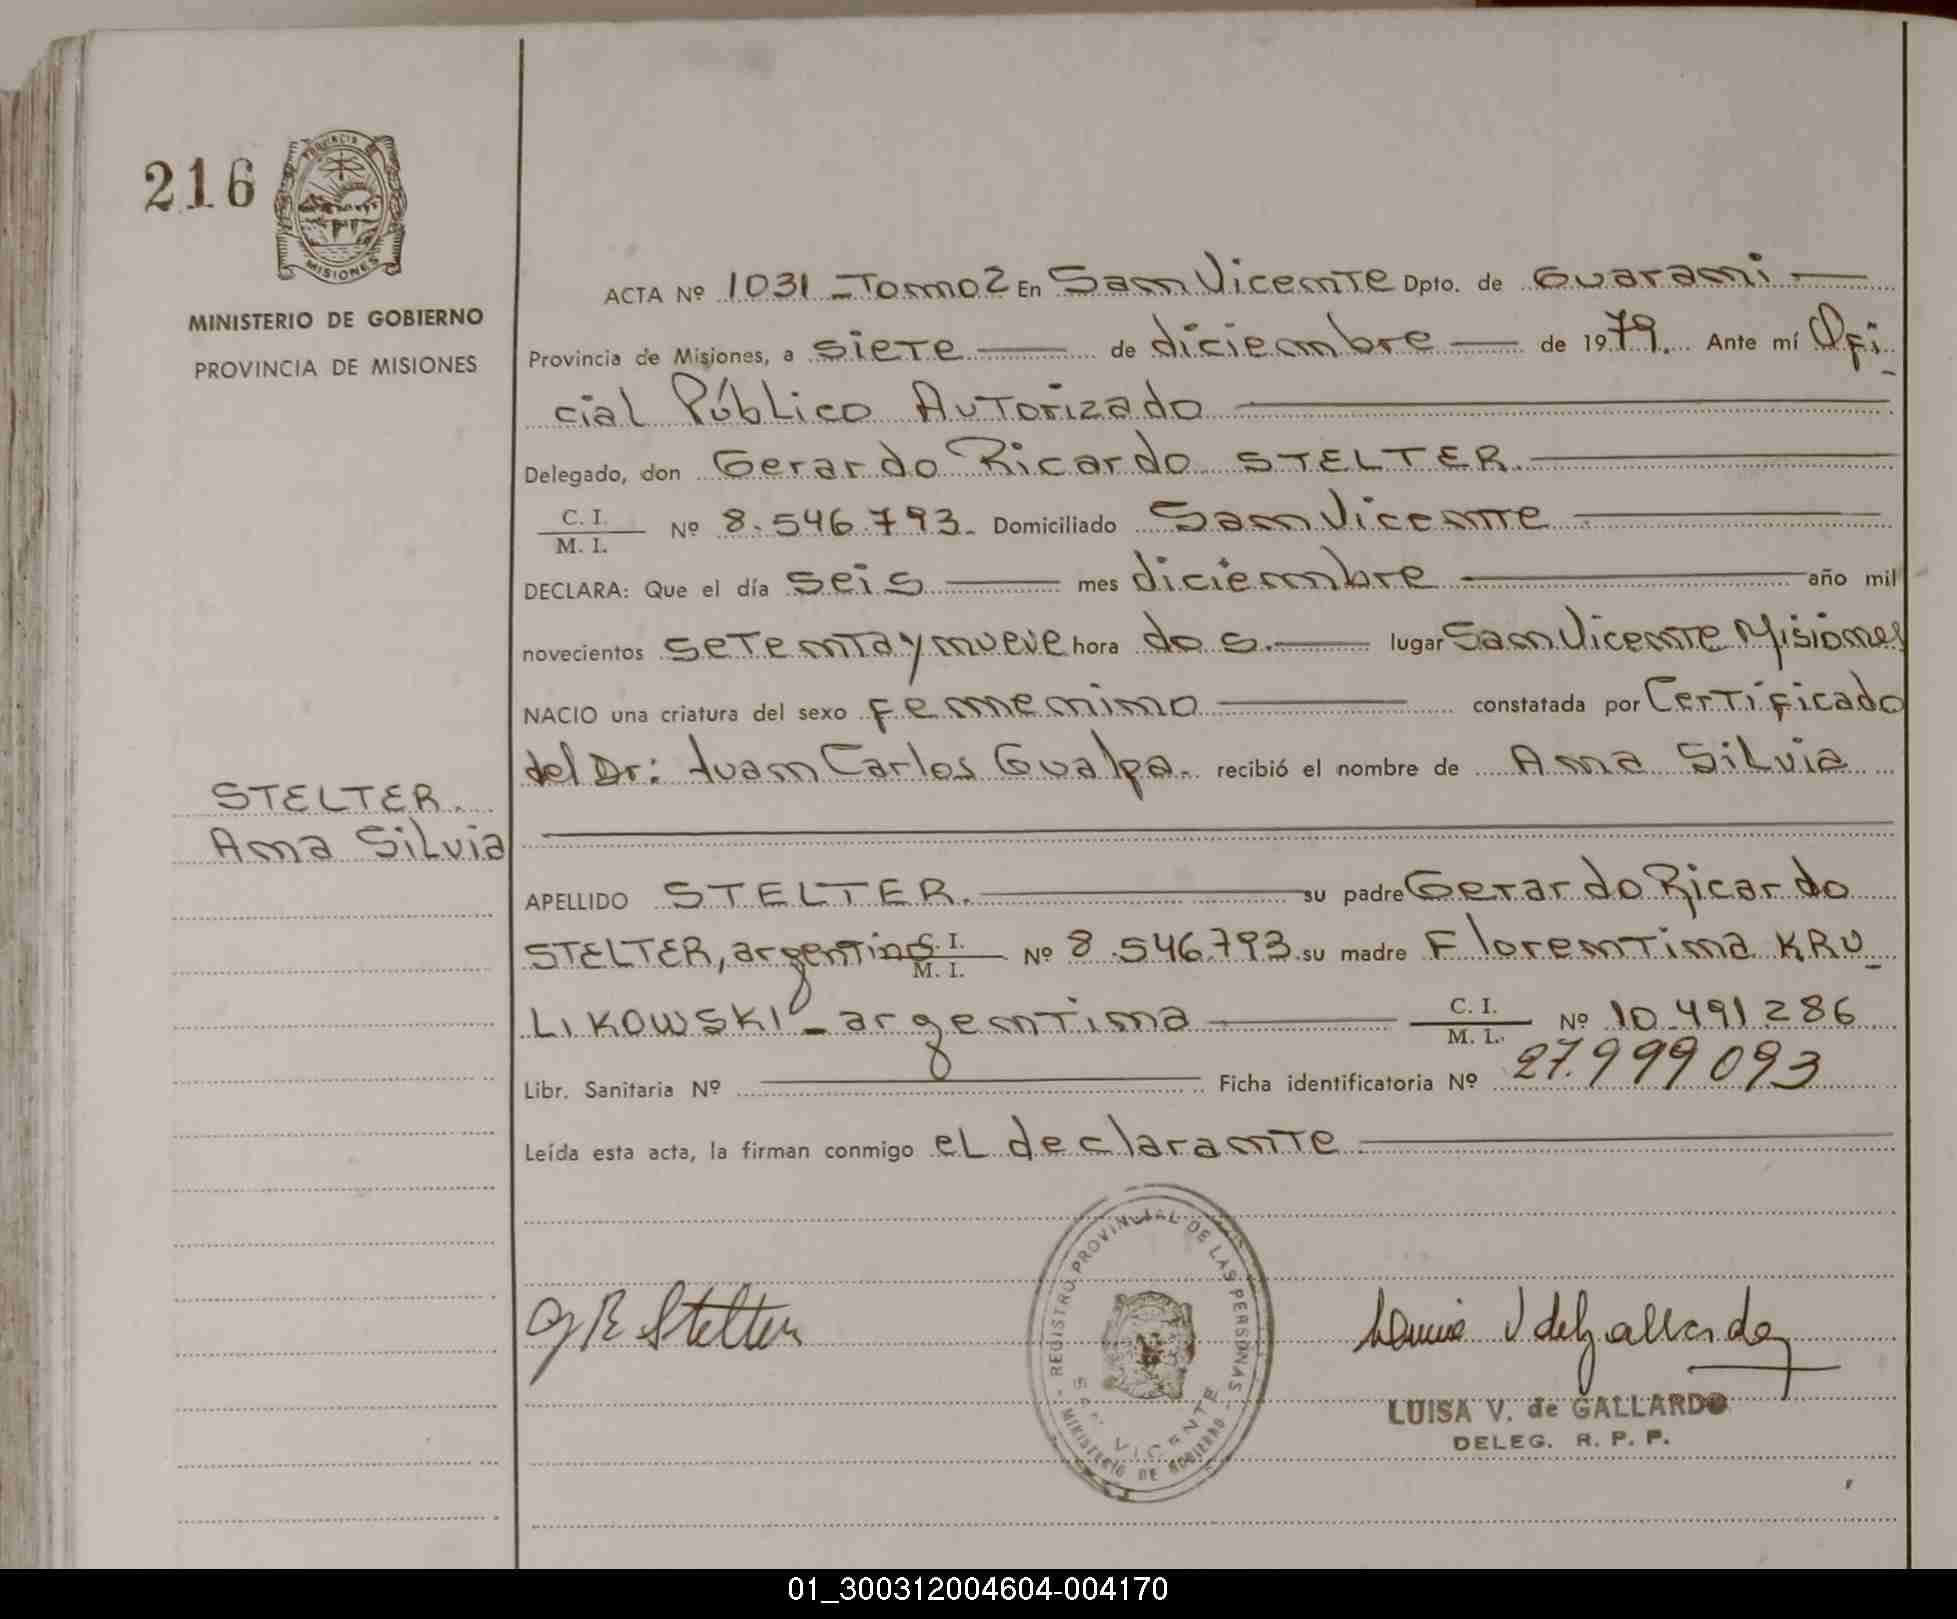 216
PROVINCIA DE
MISIONES
MINISTERIO DE GOBIERNO
PROVINCIA DE MISIONES
ACTA Nº 1031 - Tomo 2 En San Vicente Dpto. de Guarani
Provincia de Misiones, a siete de diciembre de 1979. Ante mí Ofi-
cial Público Autorizado
Delegado, don Gerardo Ricardo STELTER.
C. I.
M. I. Nº 8.546.793. Domiciliado San Vicente
DECLARA: Que el día seis mes diciembre año mil
novecientos setenta y nueve hora dos. lugar San Vicente Misiones
NACIO una criatura del sexo femenino constatada por Certificado
del Dr: Juan Carlos Gualpa. recibió el nombre de Ana Silvia
STELTER.
Ana Silvia
APELLIDO STELTER. su padre Gerardo Ricardo
STELTER, argentino C. I. M. I. Nº 8.546.793 su madre Florentina KRU-
LIKOWSKI - argentina C. I. M. I. Nº 10.491.286
Libr. Sanitaria Nº Ficha identificatoria Nº 27.999093
Leída esta acta, la firman conmigo el declarante
G R Stelter
REGISTRO PROVINCIAL DE LAS PERSONAS
SAN VICENTE
MINISTERIO DE GOBIERNO
Luisa V de Gallardo
LUISA V. de GALLARDO
DELEG. R. P. P.
01_300312004604-004170